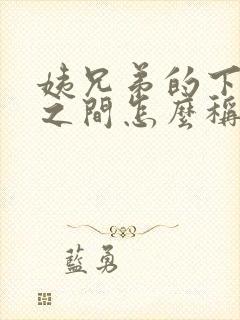 姨兄弟的下
之間怎麼稱
藍勇